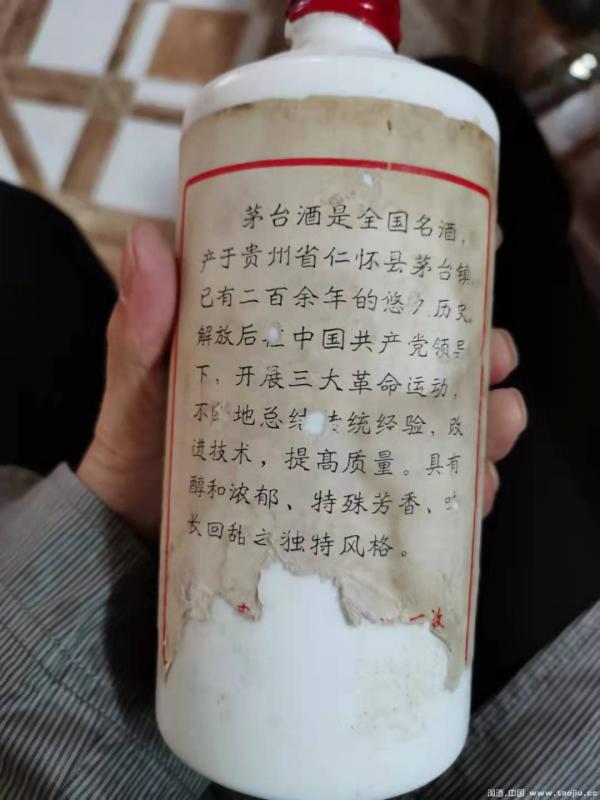 茅台酒是全国名酒，
产于贵州省仁怀县茅台镇
已有二百余年的悠 历史
解放后 中国共产党领导
下，开展三大革命运动，
不 地总结传统经验，改
进技术，提高质量。具有
醇和浓郁、特殊芳香、味
长回甜之独特风格。
一
淘酒.中国 www.taojiu.cc